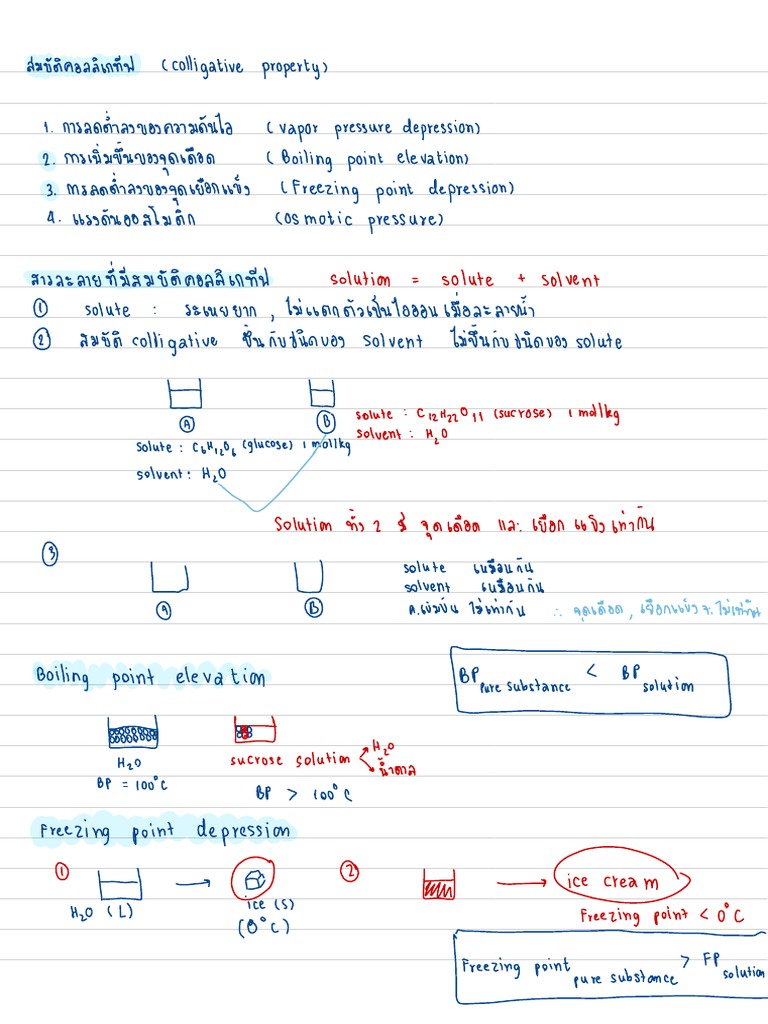 สมบัติคอลลิเกทีฟ (colligative property)
1. การลดต่ำลงของความดันไอ (vapor pressure depression)
2. การเพิ่มขึ้นของจุดเดือด (Boiling point elevation)
3. การลดต่ำลงของจุดเยือกแข็ง (Freezing point depression)
4. แรงดันออสโมติก (osmotic pressure)
สารละลายที่มีสมบัติคอลลิเกทีฟ solution = solute + solvent
① solute : ระเหยยาก , ไม่แตกตัวเป็นไอออนเมื่อละลายน้ำ
② สมบัติ colligative ขึ้นกับชนิดของ solvent ไม่ขึ้นกับชนิดของ solute
Ⓐ Ⓑ
solute : C12H22O11 (sucrose) 1 mol/kg
solvent : H2O
solute : C6H12O6 (glucose) 1 mol/kg
solvent : H2O
Solution ทั้ง 2 มี จุดเดือด และ เยือกแข็งเท่ากัน
③
solute เหมือนกัน
solvent เหมือนกัน
Ⓑ
ค.เข้มข้น ไม่เท่ากัน ∴ จุดเดือด , เยือกแข็ง จะไม่เท่ากัน
Boiling point elevation
BP pure substance < BP solution
H2O
BP = 100°C
sucrose solution
H2O
น้ำตาล
BP > 100°C
Freezing point depression
① H2O (L)
ice (s)
(0°C)
② ice cream
Freezing point < 0°C
Freezing point pure substance > FP solution